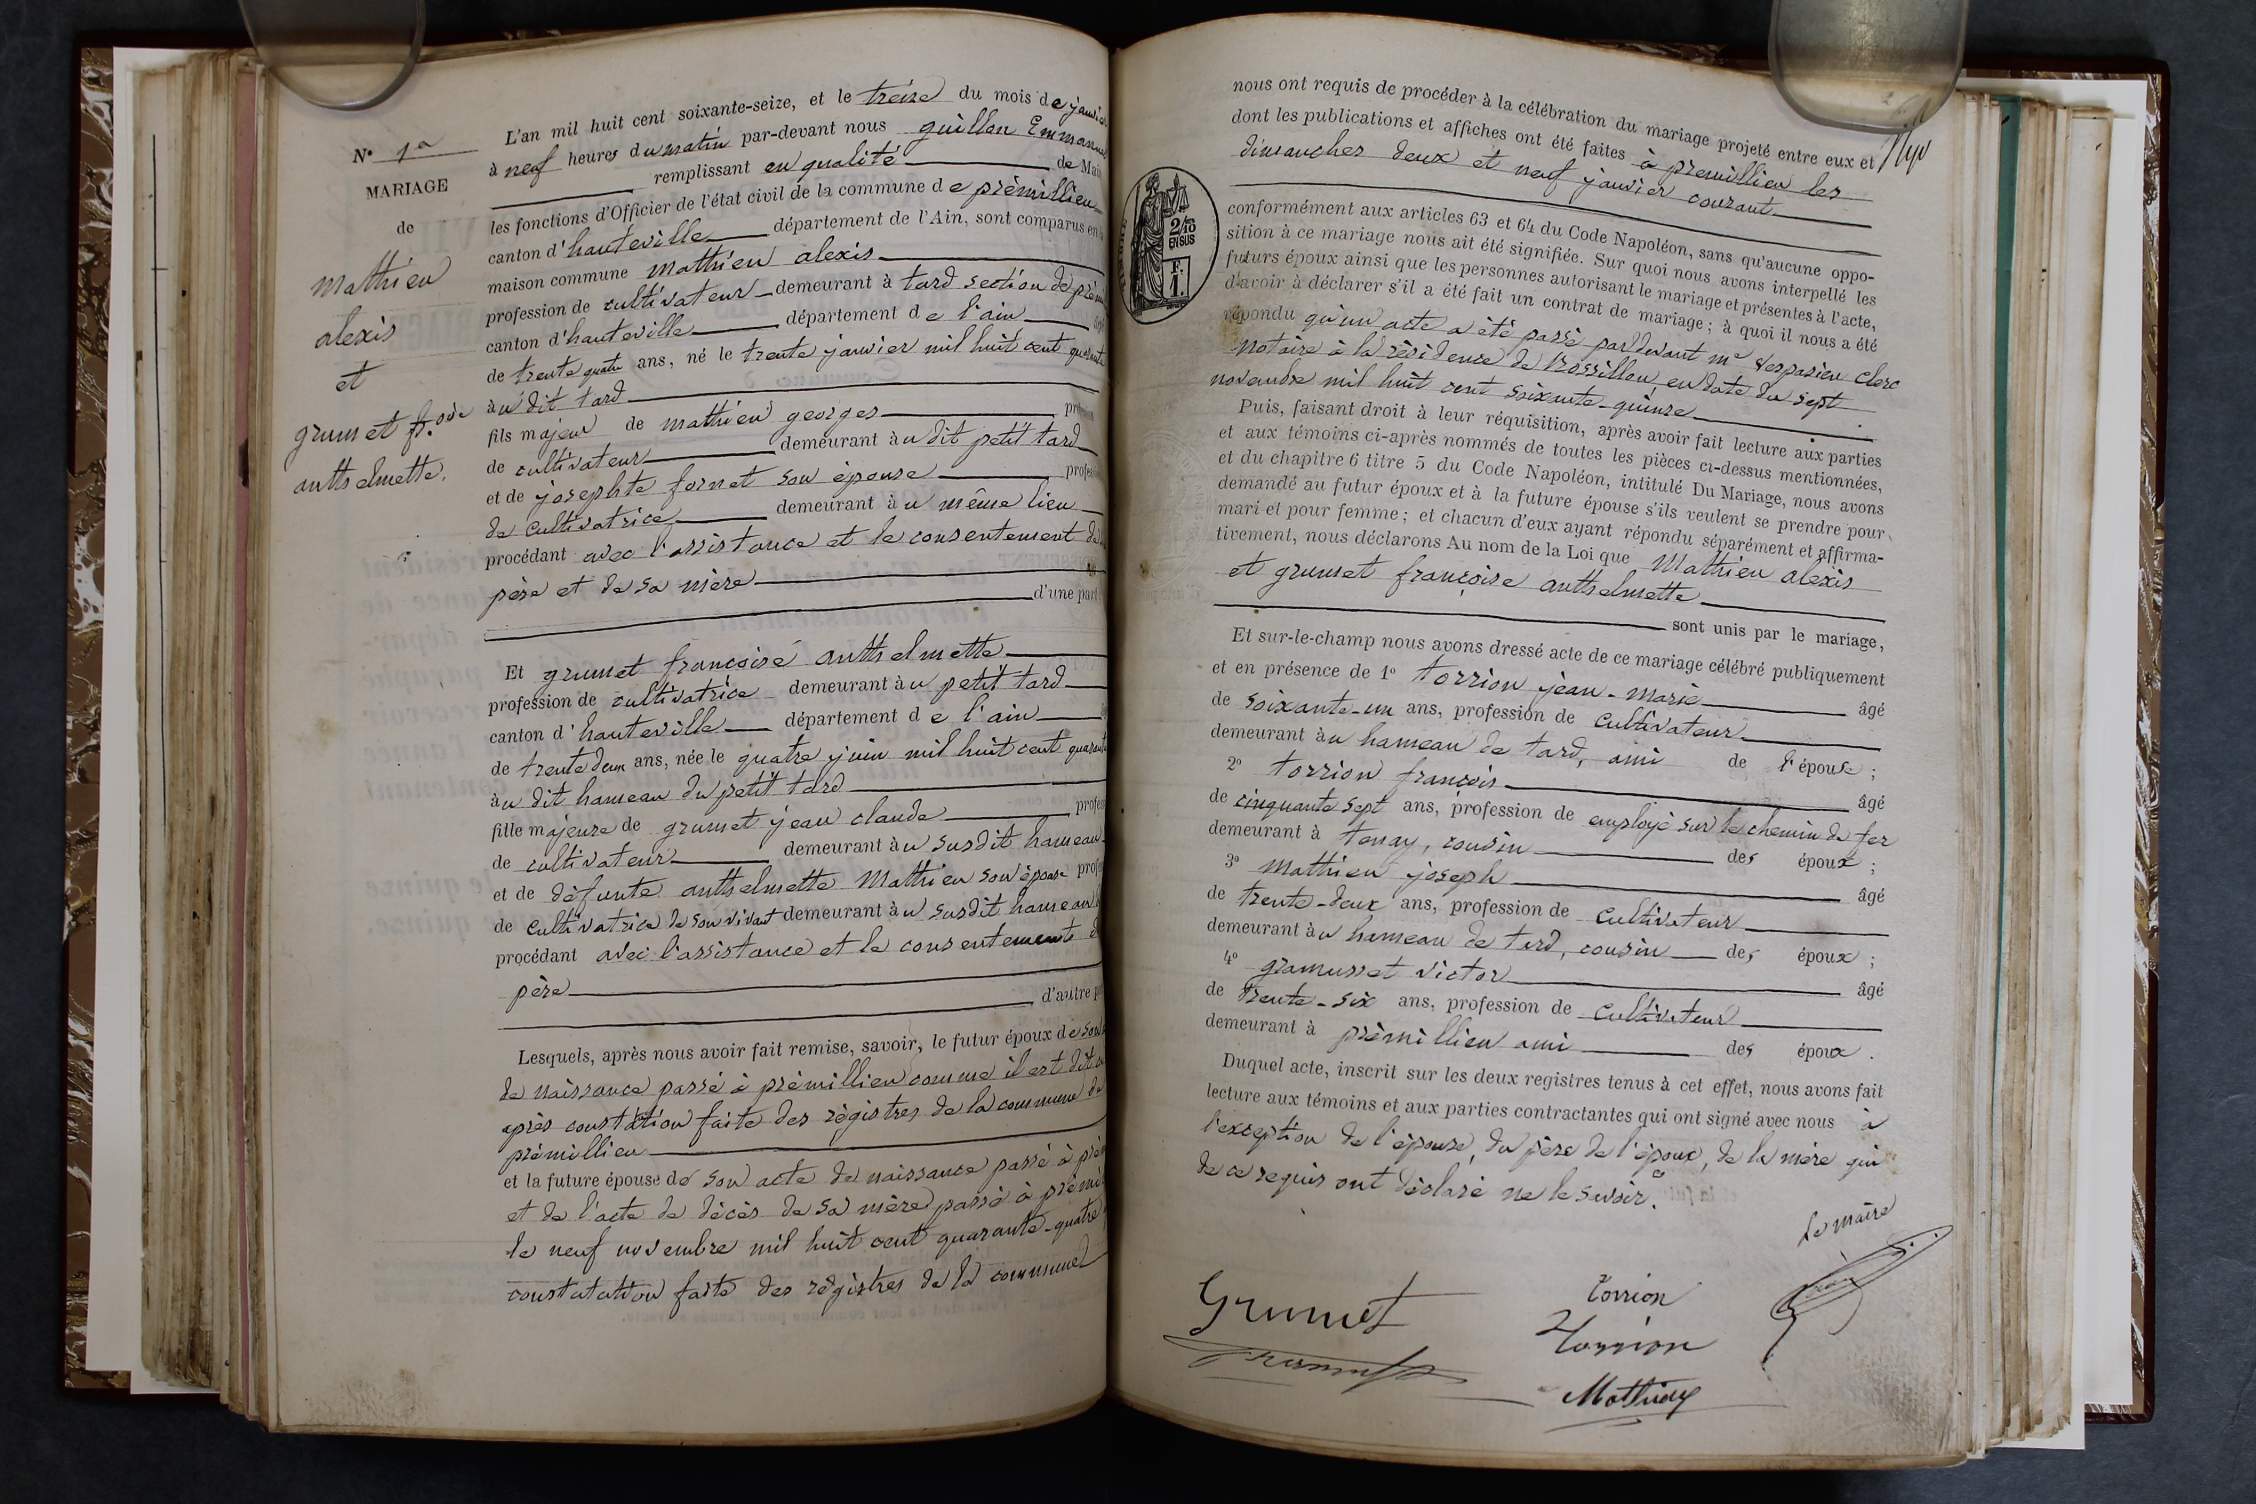 N° 1er
MARIAGE
de
Mathieu
alexis
et
grumet fr.oise
anthelmette.
L'an mil huit cent soixante-seize, et le treize du mois de janvier
à neuf heures du matin par-devant nous guillon Emmanuel
remplissant en qualité de Maire
les fonctions d'Officier de l'état civil de la commune de prémillieu
canton d'hauteville département de l'Ain, sont comparus en la
maison commune Mathieu alexis
profession de cultivateur demeurant à tard section de prém
canton d'hauteville département de l'ain
de trente quatre ans, né le trente janvier mil huit cent quarante
au dit tard
fils majeur de mathieu georges profession
de cultivateur demeurant au dit petit tard
et de josephte fornet son épouse profession
de cultivatrice demeurant au même lieu
procédant avec l'assistance et le consentement de
père et de sa mère
d'une part
Et grumet françoise anthelmette
profession de cultivatrice demeurant au petit tard
canton d'hauteville département de l'ain
de trente deux ans, née le quatre juin mil huit cent quarante
au dit hameau du petit tard
fille majeure de grumet jean claude profession
de cultivateur demeurant au susdit hameau
et de défunte anthelmette Mathieu son épouse profession
de cultivatrice de son vivant demeurant au susdit hameau
procédant avec l'assistance et le consentement de
père
d'autre part
Lesquels, après nous avoir fait remise, savoir, le futur époux de son
de naissance passé à prémillieu comme il est dit
après constatation faite des régistres de la commune de
prémillieu
et la future épouse de son acte de naissance passé à prém
et de l'acte de décès de sa mère passé à prémi
le neuf novembre mil huit cent quarante-quatre
constatation faite des régistres de la commune
nous ont requis de procéder à la célébration du mariage projeté entre eux et
dont les publications et affiches ont été faites à premillieu les
dimanches deux et neuf janvier courant
2/10
EN SUS
F.
1.
conformément aux articles 63 et 64 du Code Napoléon, sans qu'aucune oppo-
sition à ce mariage nous ait été signifiée. Sur quoi nous avons interpellé les
futurs époux ainsi que les personnes autorisant le mariage et présentes à l'acte,
d'avoir à déclarer s'il a été fait un contrat de mariage; à quoi il nous a été
répondu qu'un acte a été passé pardevant me Vespasien Clerc
Notaire à la résidence de Rossillon, en date du sept
novembre mil huit cent soixante-quinze
Puis, faisant droit à leur réquisition, après avoir fait lecture aux parties
et aux témoins ci-après nommés de toutes les pièces ci-dessus mentionnées,
et du chapitre 6 titre 5 du Code Napoléon, intitulé Du Mariage, nous avons
demandé au futur époux et à la future épouse s'ils veulent se prendre pour
mari et pour femme; et chacun d'eux ayant répondu séparément et affirma-
tivement, nous déclarons Au nom de la Loi que Mathieu alexis
et grumet françoise anthelmette
sont unis par le mariage,
Et sur-le-champ nous avons dressé acte de ce mariage célébré publiquement
et en présence de 1° torrion jean-marie âgé
de soixante-un ans, profession de cultivateur
demeurant au hameau de tard, ami de l'épouse;
2° torrion françois âgé
de cinquante sept ans, profession de employé sur le chemin de fer
demeurant à tenay, cousin des époux;
3° Mathieu joseph âgé
de trente-deux ans, profession de cultivateur
demeurant au hameau de tard, cousin des époux;
4° gramusset victor âgé
de trente-six ans, profession de cultivateur
demeurant à prémillieu ami des époux.
Duquel acte, inscrit sur les deux registres tenus à cet effet, nous avons fait
lecture aux témoins et aux parties contractantes qui ont signé avec nous à
l'exception de l'épouse, du père de l'époux, de la mère qui
de ce requis ont déclaré ne le savoir.
le maire
Grumet
Torrion
Torrion
Mathieu